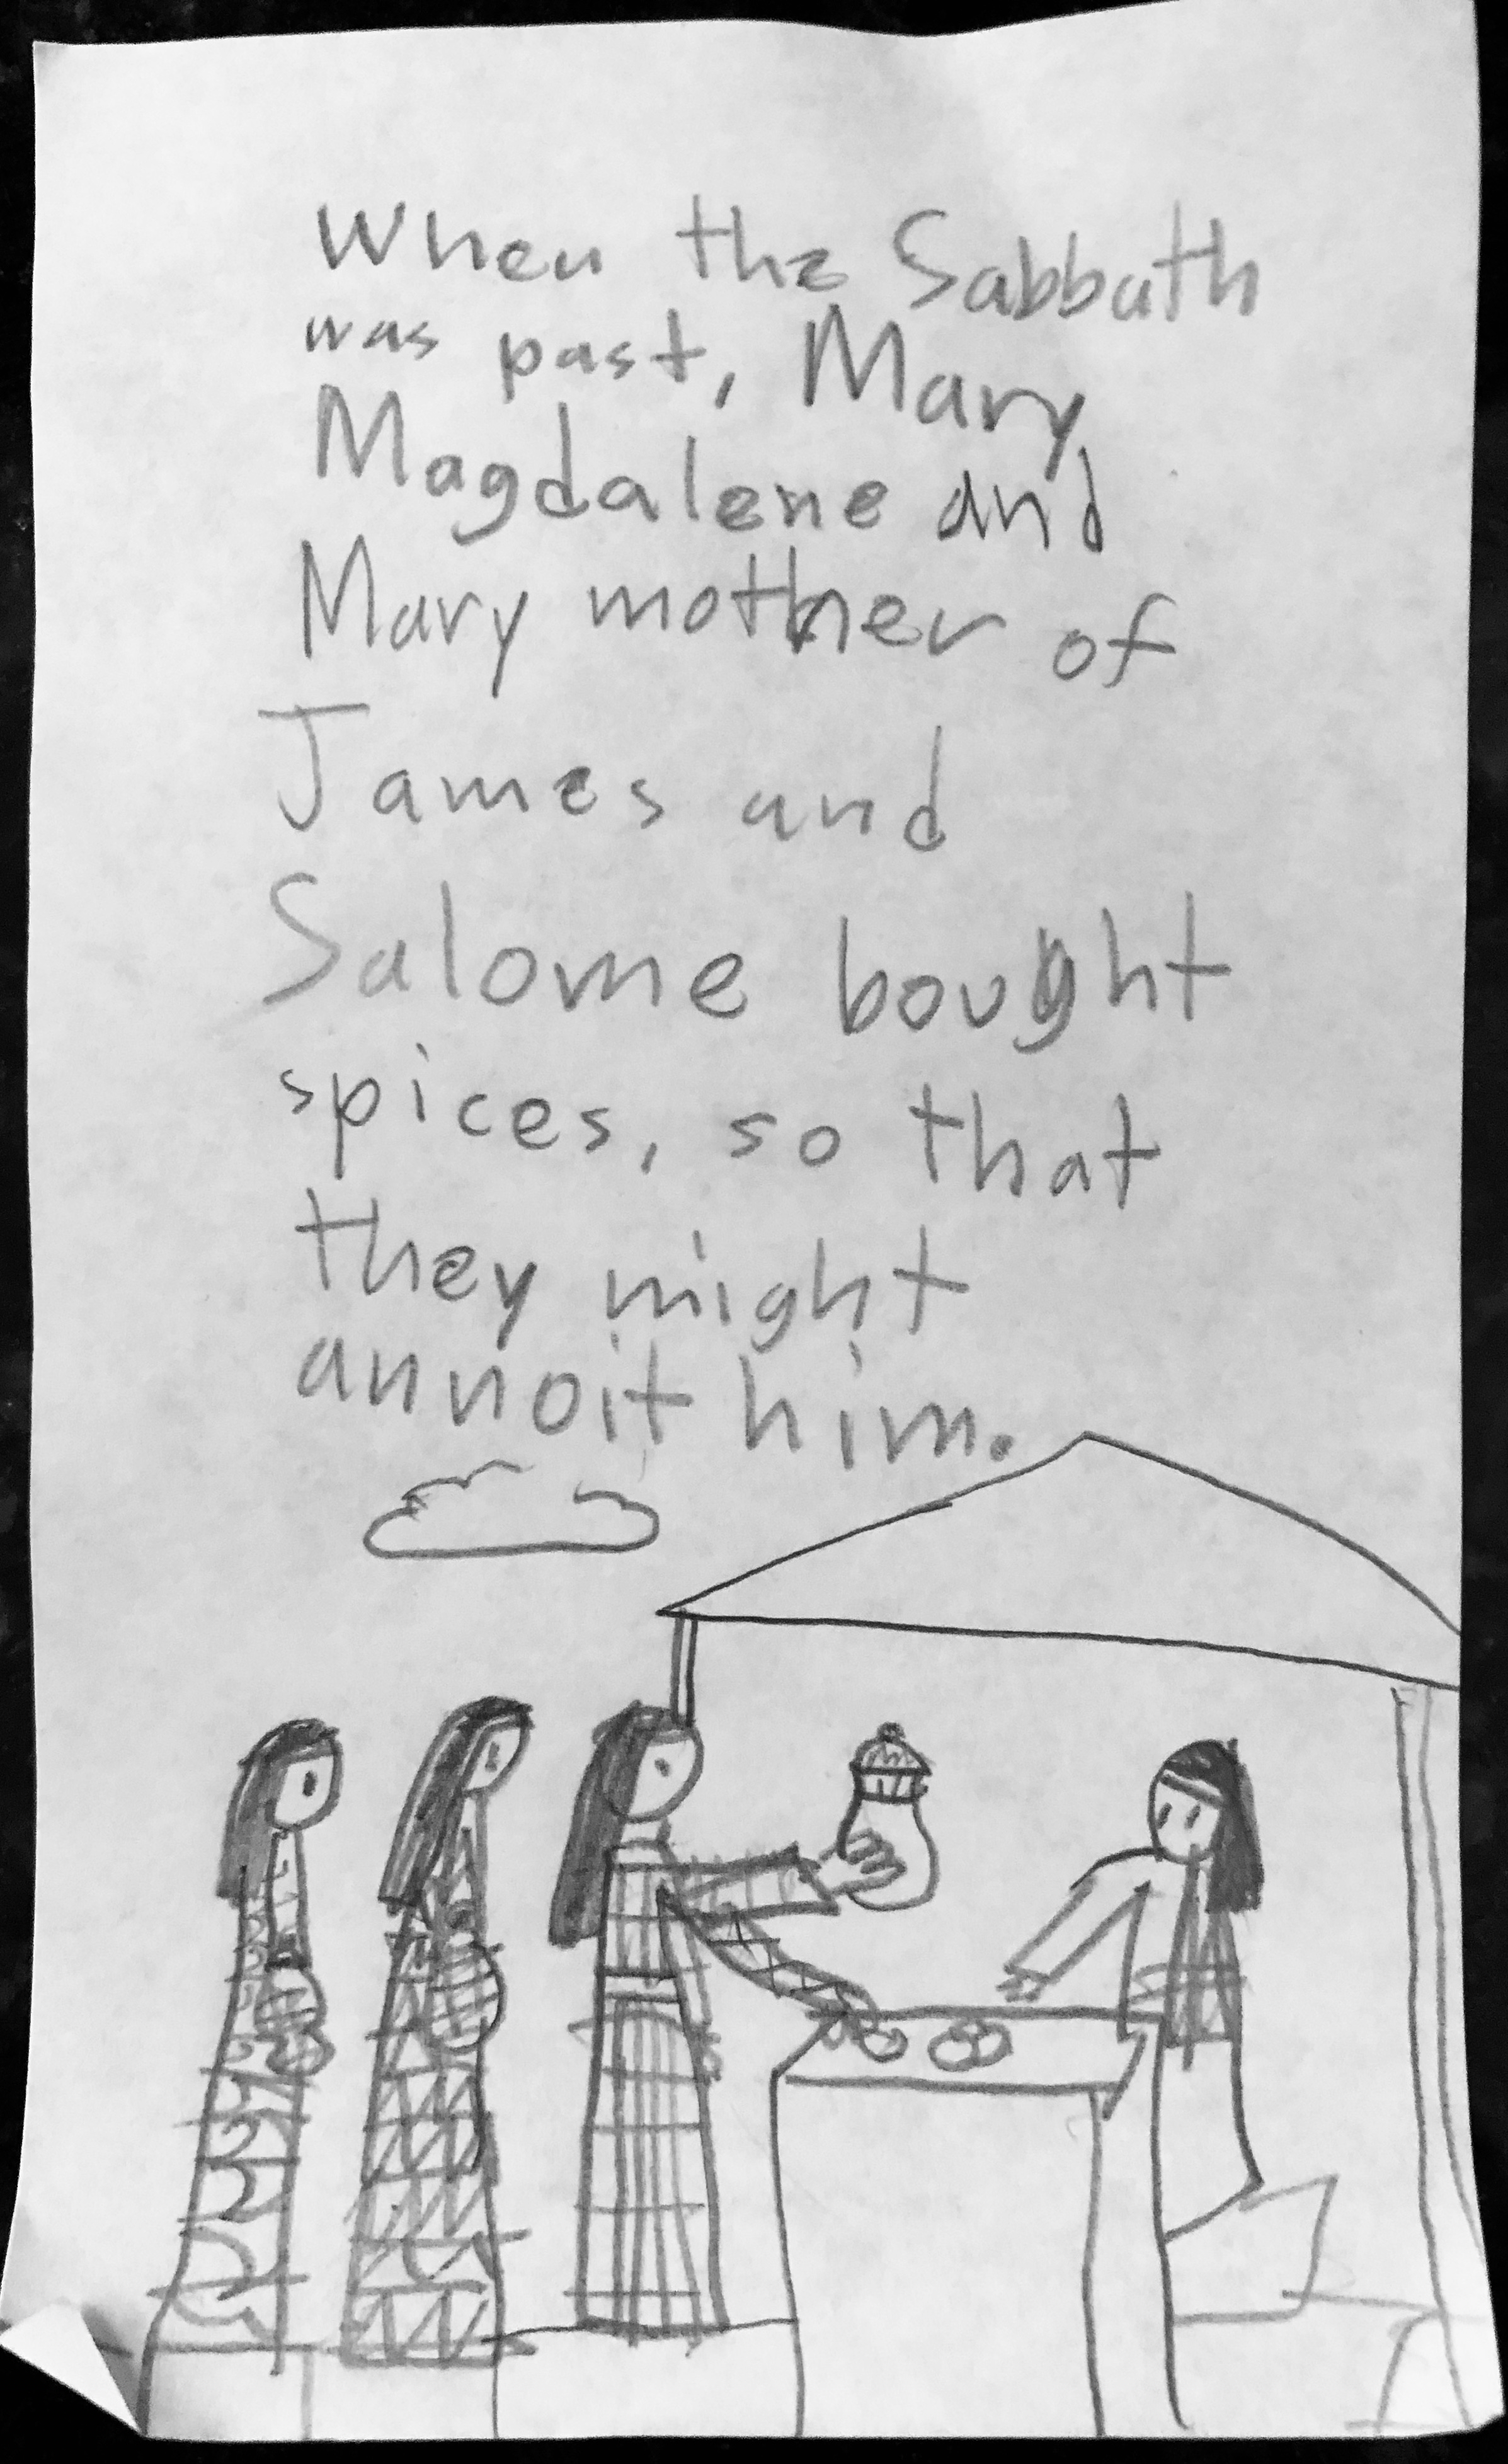 When the Sabbath
was past, Mary
Magdalene and
Mary mother of
James and
Salome bought
spices, so that
they might
annoit him.